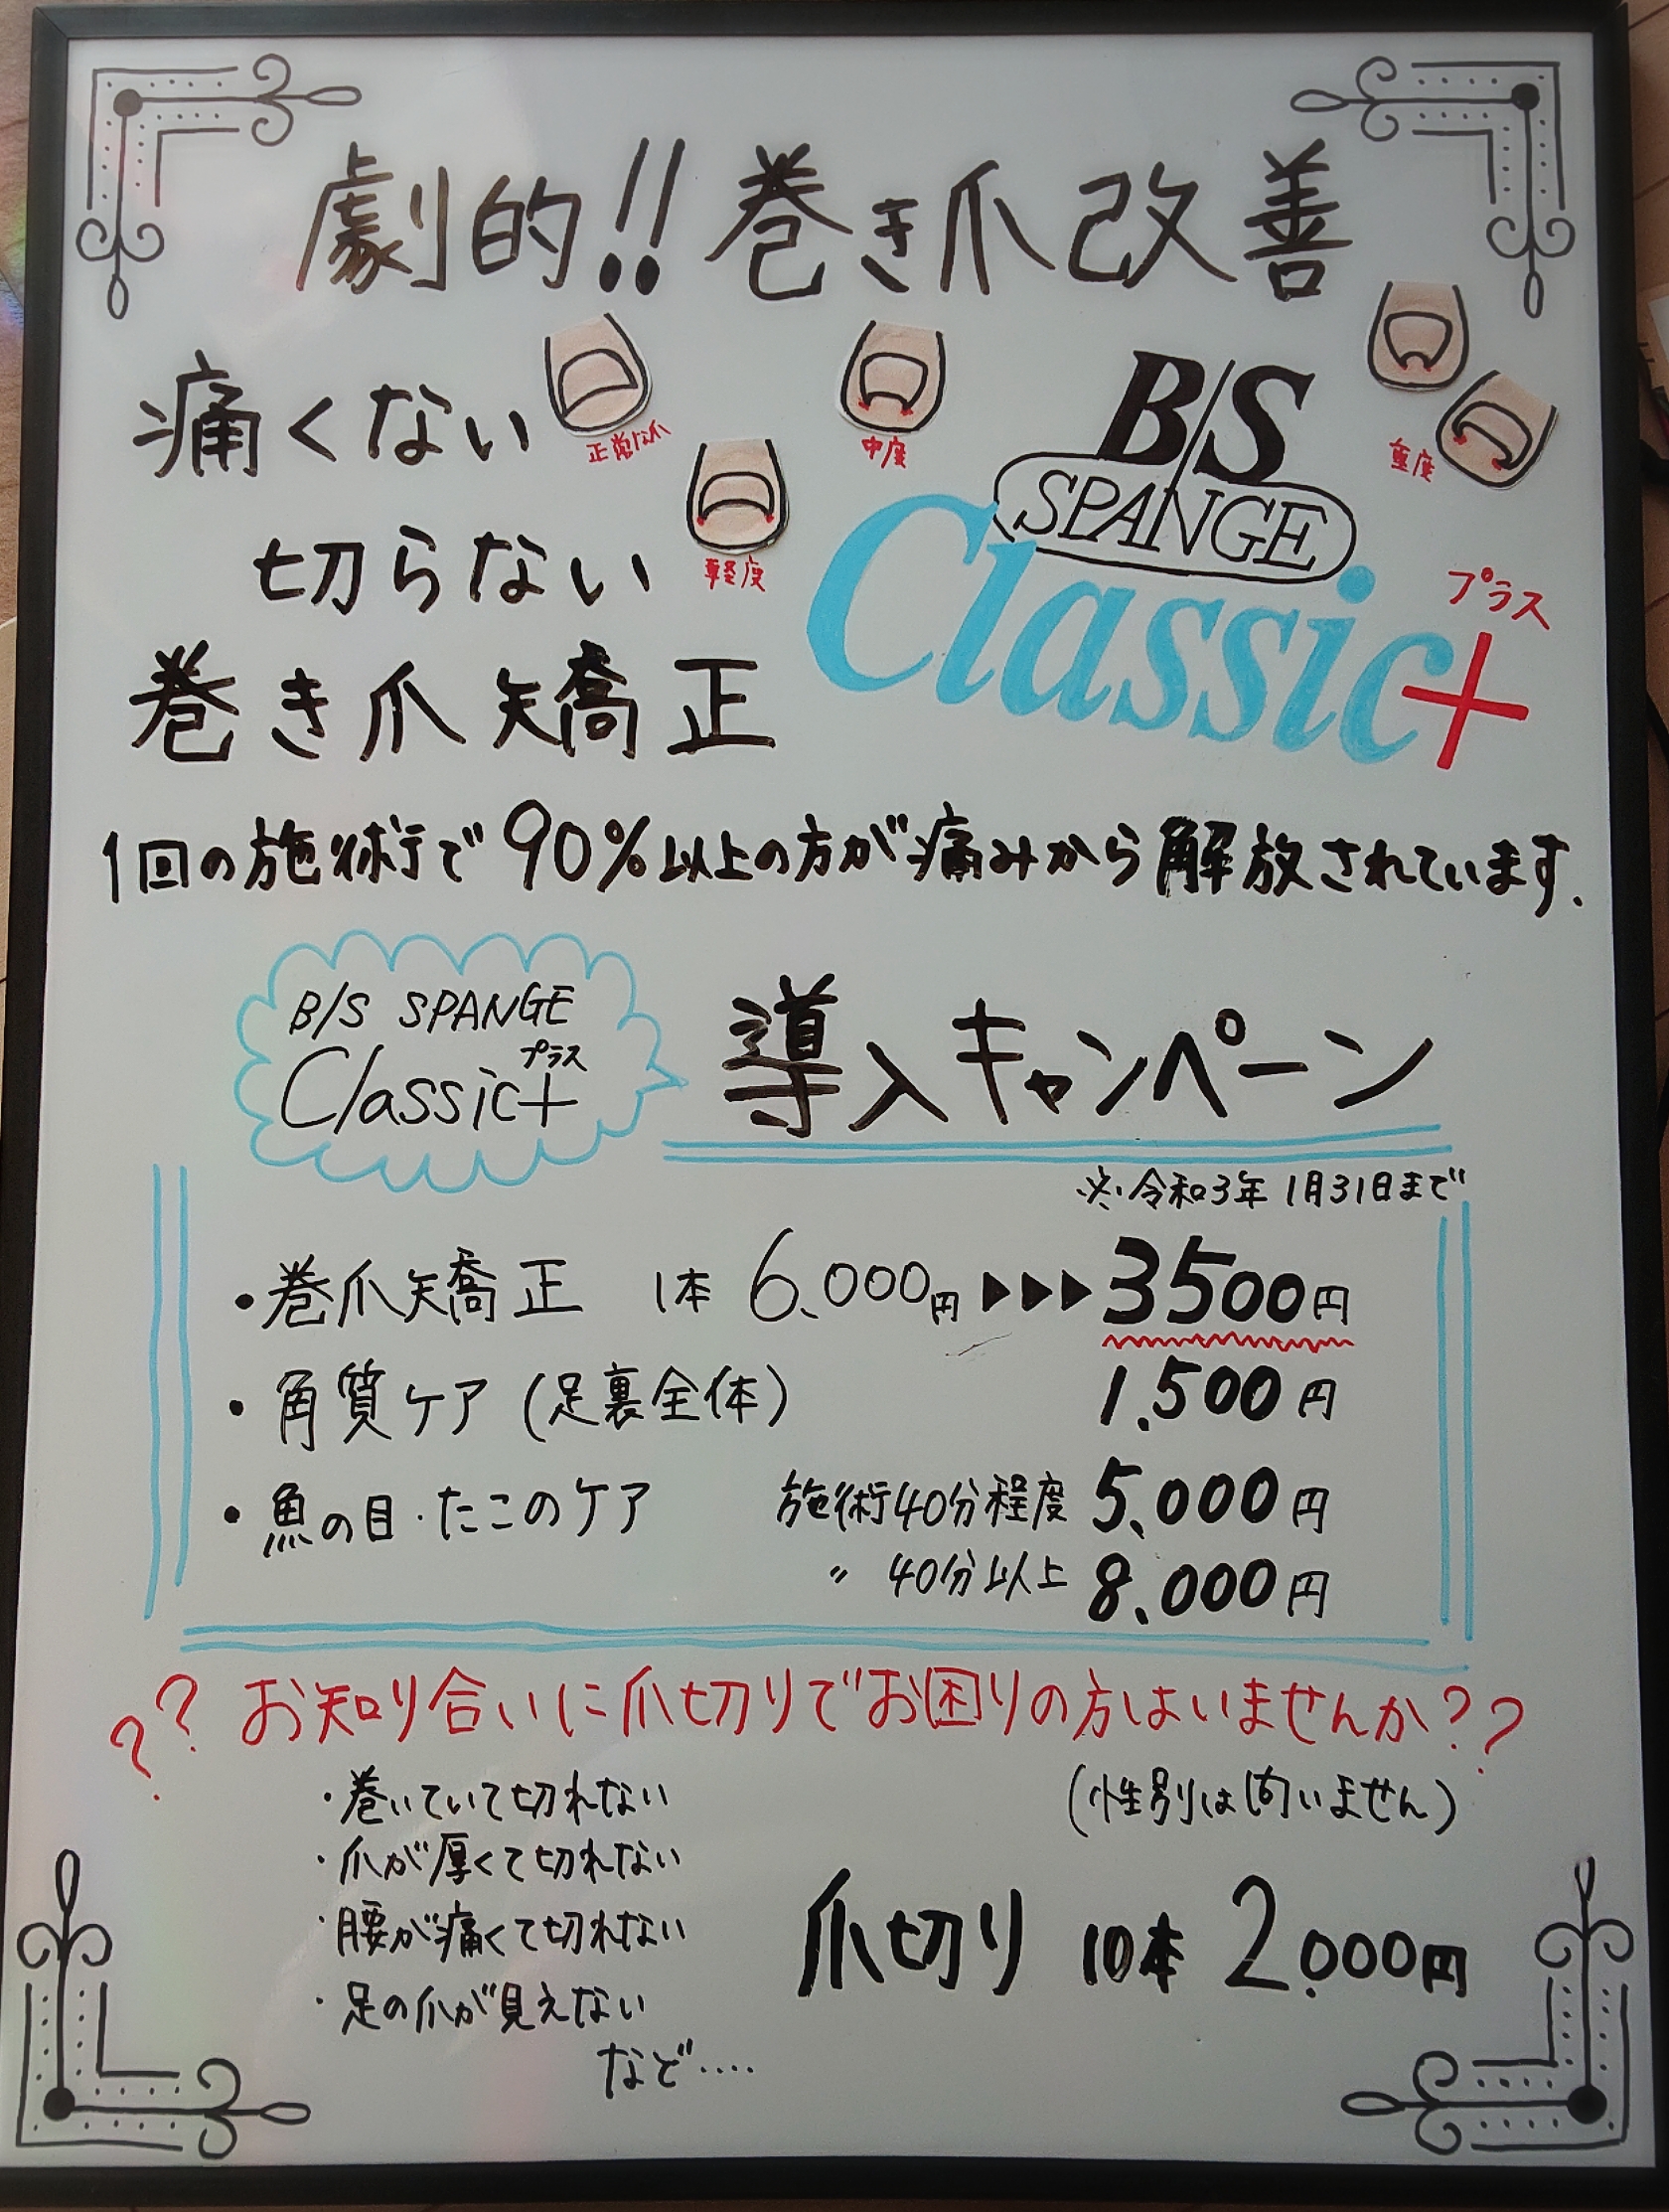 劇的!!巻き爪改善
痛くない
正常な爪
中度
重度
軽度
切らない
巻き爪矯正
B/S
SPANGE
Classic+
プラス
1回の施術で90%以上の方が痛みから解放されています.
B/S SPANGE
プラス
Classic+
導入キャンペーン
※令和3年1月31日まで
・巻爪矯正 1本 6,000円▶▶▶3500円
・角質ケア(足裏全体) 1,500円
・魚の目・たこのケア 施術40分程度 5,000円
〃 40分以上 8,000円
??お知り合いに爪切りでお困りの方はいませんか??
(性別は問いません)
・巻いていて切れない
・爪が厚くて切れない
・腰が痛くて切れない
・足の爪が見えない
など....
爪切り 10本 2,000円